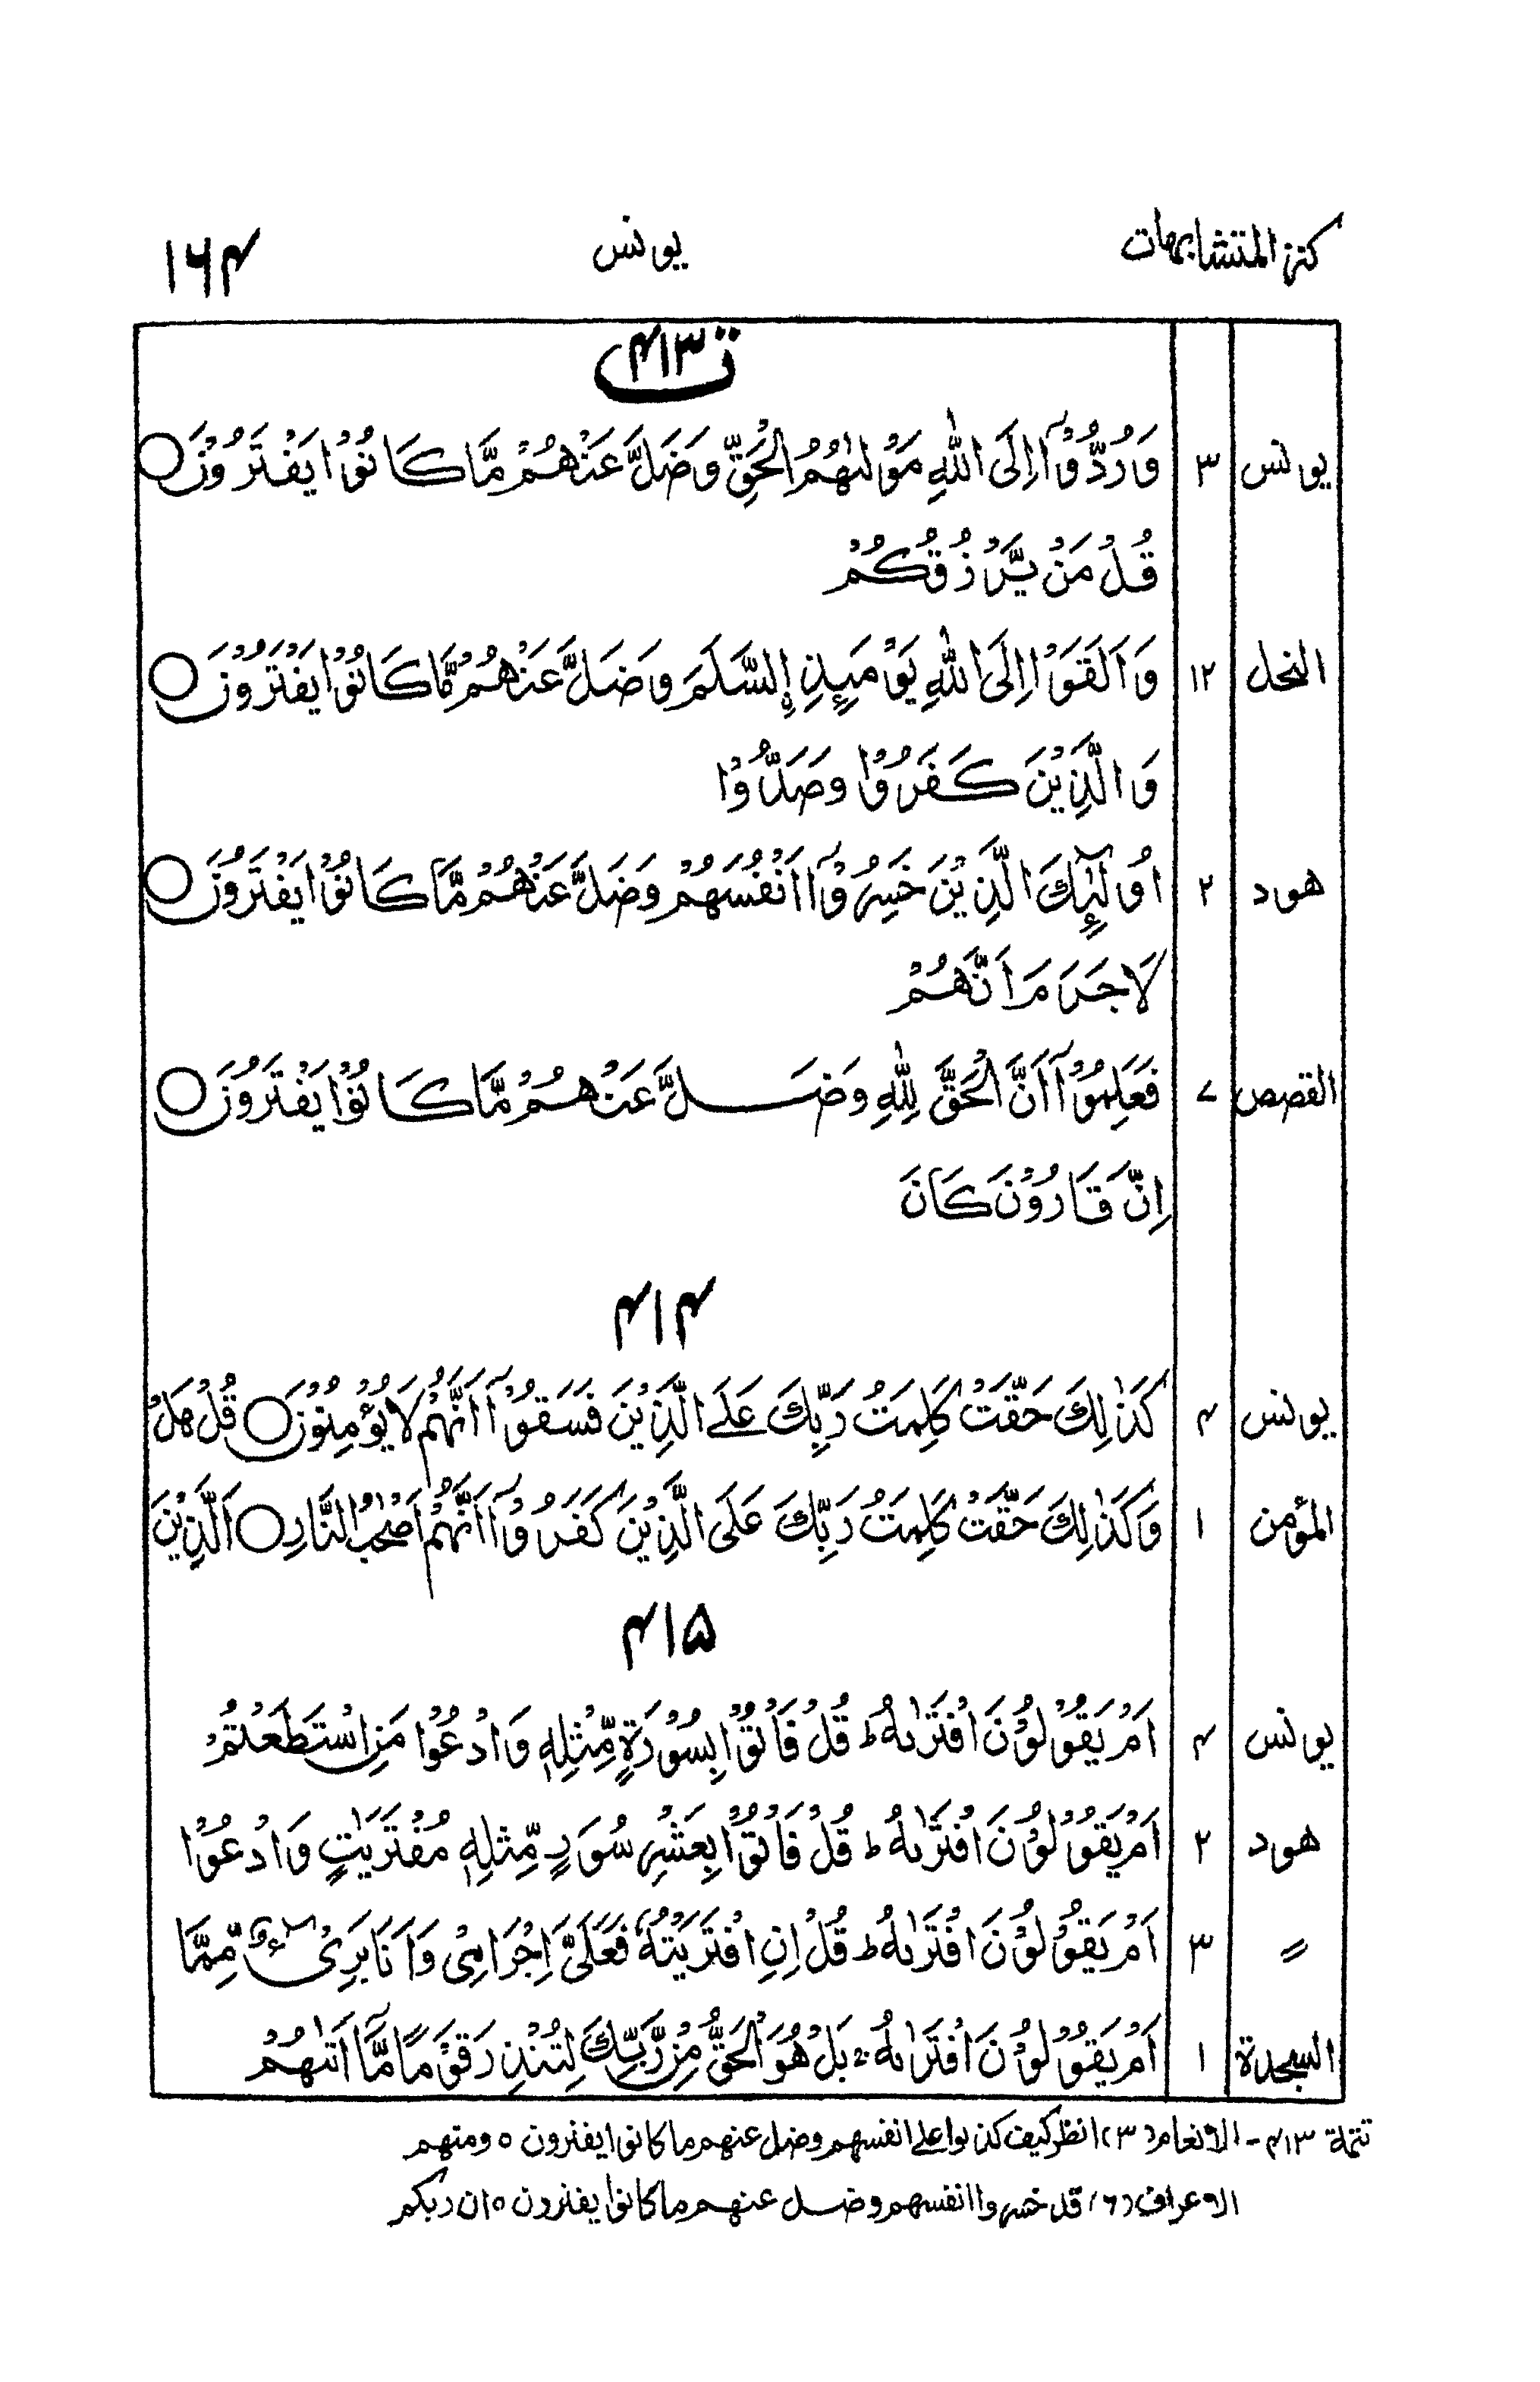 كنز المتشابهات يونس ۱۶۴
ت ۴۱۳
يونس ۳ وَرُدُّوْٓا اِلَى اللّٰهِ مَوْلٰىهُمُ الْحَقِّ وَضَلَّ عَنْهُمْ مَّا كَانُوْا يَفْتَرُوْنَ ○
قُلْ مَنْ يَّرْزُقُكُمْ
النحل ۱۲ وَاَلْقَوْا اِلَى اللّٰهِ يَوْمَىِٕذِ ࣙالسَّلَمَ وَضَلَّ عَنْهُمْ مَّا كَانُوْا يَفْتَرُوْنَ ○
وَالَّذِيْنَ كَفَرُوْا وَصَدُّوْا
هود ۲ اُولٰٓىِٕكَ الَّذِيْنَ خَسِرُوْٓا اَنْفُسَهُمْ وَضَلَّ عَنْهُمْ مَّا كَانُوْا يَفْتَرُوْنَ ○
لَا جَرَمَ اَنَّهُمْ
القصص ۷ فَعَلِمُوْٓا اَنَّ الْحَقَّ لِلّٰهِ وَضَلَّ عَنْهُمْ مَّا كَانُوْا يَفْتَرُوْنَ ○
اِنَّ قَارُوْنَ كَانَ
۴۱۴
يونس ۴ كَذٰلِكَ حَقَّتْ كَلِمَتُ رَبِّكَ عَلَے الَّذِيْنَ فَسَقُوْٓا اَنَّهُمْ لَا يُؤْمِنُوْنَ ○ قُلْ هَلْ
المؤمن ۱ وَكَذٰلِكَ حَقَّتْ كَلِمَتُ رَبِّكَ عَلَى الَّذِيْنَ كَفَرُوْٓا اَنَّهُمْ اَصْحٰبُ النَّارِ ○ اَلَّذِيْنَ
۴۱۵
يونس ۴ اَمْ يَقُوْلُوْنَ افْتَرٰىهُ ط قُلْ فَاْتُوْا بِسُوْرَةٍ مِّثْلِهٖ وَادْعُوْا مَنِ اسْتَطَعْتُمْ
هود ۲ اَمْ يَقُوْلُوْنَ افْتَرٰىهُ ط قُلْ فَاْتُوْا بِعَشْرِ سُوَرٍ مِّثْلِهٖ مُفْتَرَيٰتٍ وَادْعُوْا
〃 ۳ اَمْ يَقُوْلُوْنَ افْتَرٰىهُ ط قُلْ اِنِ افْتَرَيْتُهٗ فَعَلَيَّ اِجْرَامِيْ وَاَنَا بَرِيْٓءٌ مِّمَّا
السجدة ۱ اَمْ يَقُوْلُوْنَ افْتَرٰىهُ ۚ بَلْ هُوَ الْحَقُّ مِنْ رَّبِّكَ لِتُنْذِرَ قَوْمًا مَّآ اَتٰىهُمْ
تتمة ۴۱۳ - الانعام (۳) انظر كيف كذبوا علے انفسهم وضل عنهم ما كانوا يفترون ○ ومنهم
الاعراف (۶) قد خسروا انفسهم وضل عنهم ما كانوا يفترون ○ ان ربكم